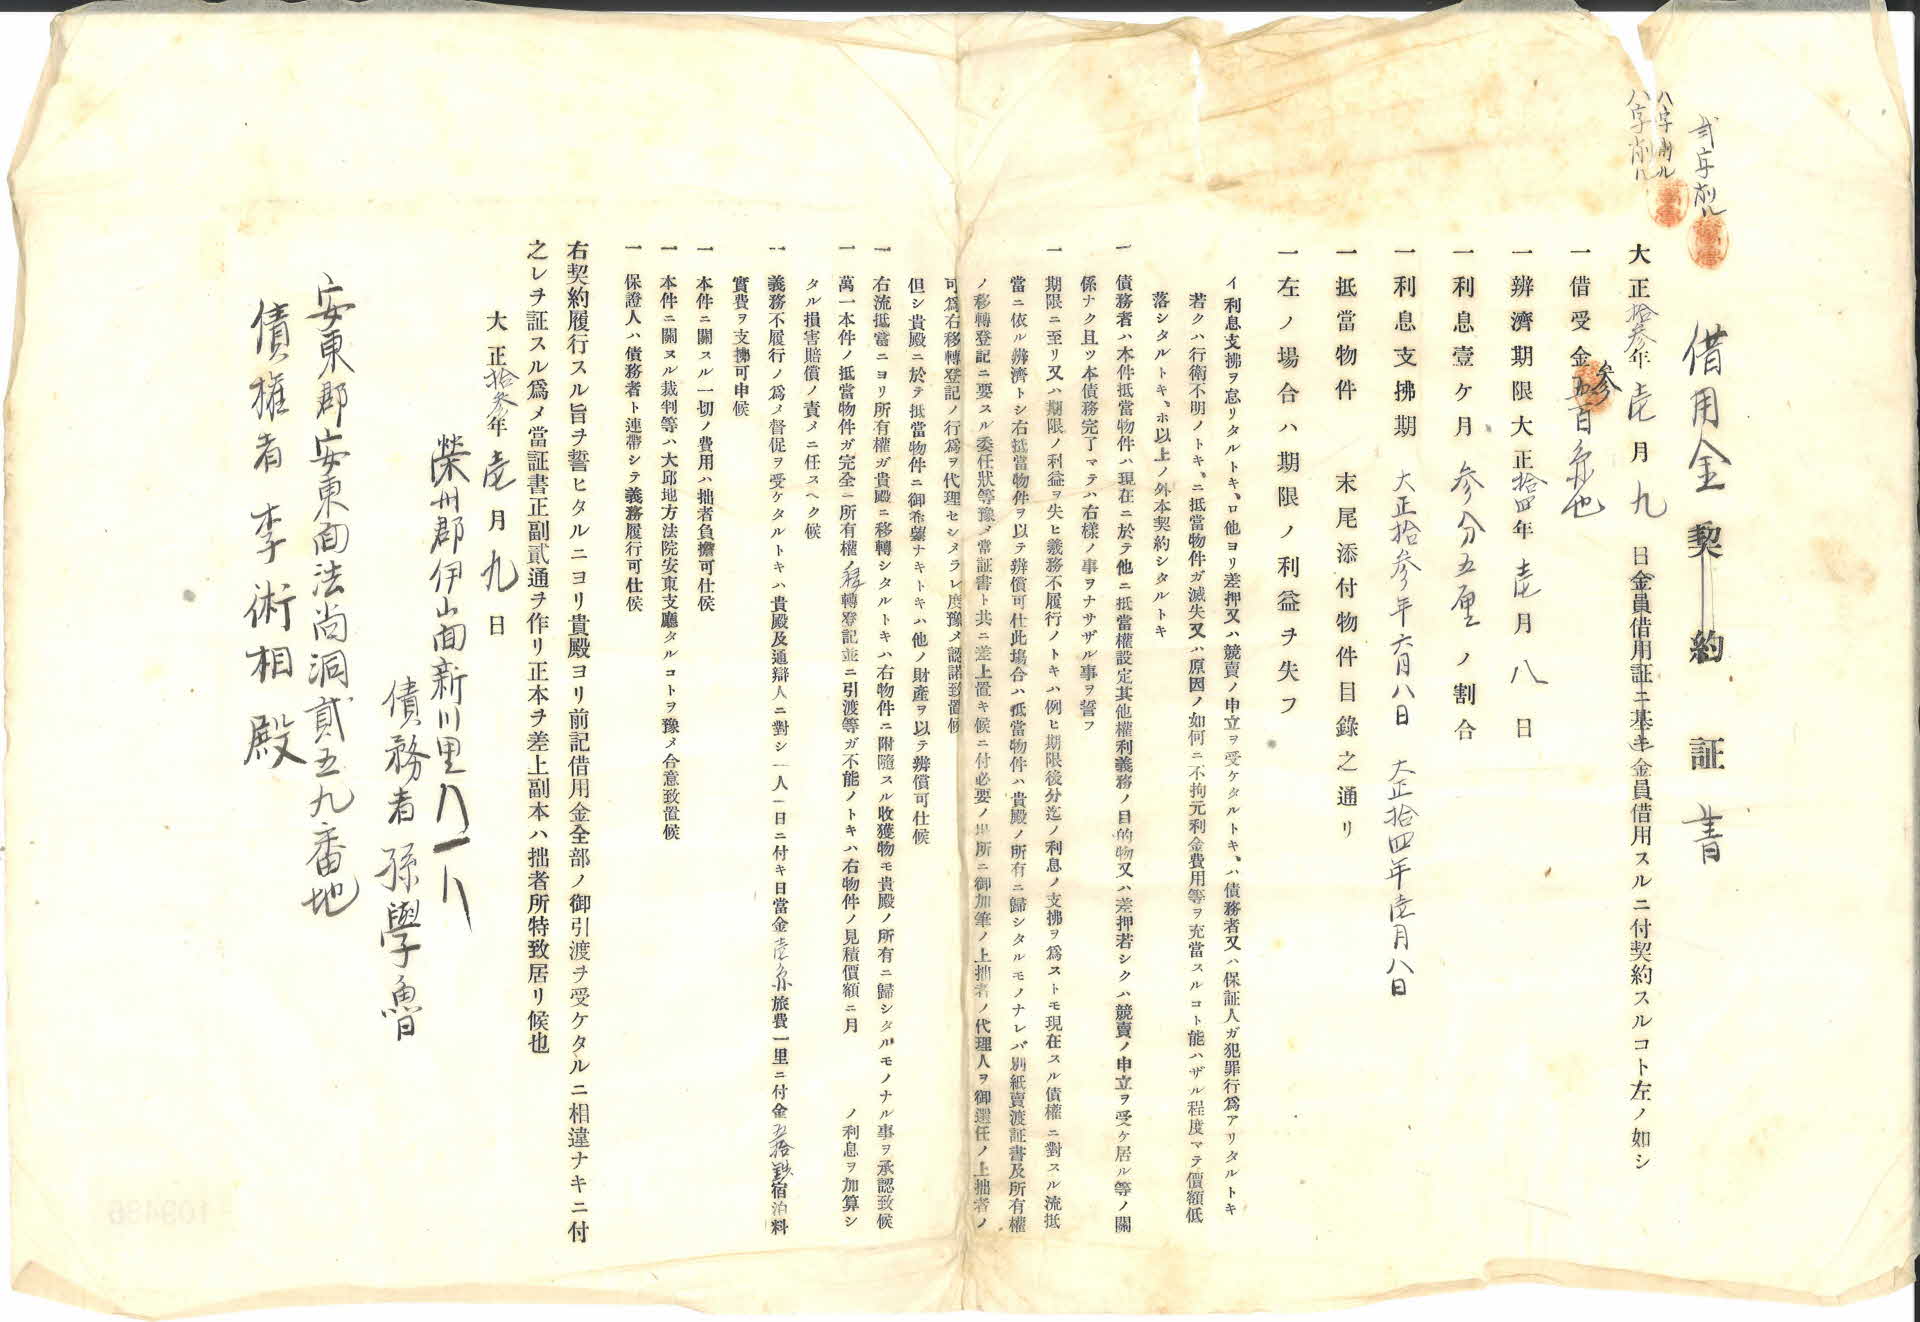 弐字削ル
八字削ル
八字削ル
借用金契約証書
大正拾参年壱月九日金員借用証ニ基キ金員借用スルニ付契約スルコト左ノ如シ
一借受金参五百円也
一辨濟期限大正拾四年壱月八日
一利息壹ケ月参分五厘ノ割合
一利息支拂期 大正拾参年六月八日 大正拾四年壱月八日
一抵當物件 末尾添付物件目錄之通リ
一左ノ場合ハ期限ノ利益ヲ失フ
イ利息支拂ヲ怠リタルトキ、ロ他ヨリ差押又ハ競賣ノ申立ヲ受ケタルトキ、ハ債務者又ハ保証人ガ犯罪行爲アリタルトキ
若クハ行衛不明ノトキ、ニ抵當物件ガ滅失又ハ原因ノ如何ニ不拘元利金費用等ヲ充當スルコト能ハザル程度マテ價額低
落シタルトキ、ホ以上ノ外本契約シタルトキ
一債務者ハ本件抵當物件ハ現在ニ於テ他ニ抵當權設定其他權利義務ノ目的物又ハ差押若シクハ競賣ノ申立ヲ受ケ居ル等ノ關
係ナク且ツ本債務完了マテハ右樣ノ事ヲナサザル事ヲ誓フ
一期限ニ至リ又ハ期限ノ利益ヲ失ヒ義務不履行ノトキハ例ヒ期限後分迄ノ利息ノ支拂ヲ爲ストモ現在スル債權ニ對スル流抵
當ニ依ル辨濟トシ右抵當物件ヲ以テ辨償可仕此塲合ハ抵當物件ハ貴殿ノ所有ニ歸シタルモノナレバ別紙賣渡証書及所有權
ノ移轉登記ニ要スル委任狀等豫メ當証書ト共ニ差上置キ候ニ付必要ノ場所ニ御加筆ノ上拙者ノ代理人ヲ御選任ノ上拙者ノ
可爲右移轉登記ノ行爲ヲ代理セシメラレ度豫メ認諾致置候
但シ貴殿ニ於テ抵當物件ニ御希望ナキトキハ他ノ財產ヲ以テ辨償可仕候
一右流抵當ニヨリ所有權ガ貴殿ニ移轉シタルトキハ右物件ニ附隨スル收獲物モ貴殿ノ所有ニ歸シタルモノナル事ヲ承認致候
一萬一本件ノ抵當物件ガ完全ニ所有權ノ移轉登記並ニ引渡等ガ不能ノトキハ右物件ノ見積價額ニ月 ノ利息ヲ加算シ
タル損害賠償ノ責メニ任スヘク候
一義務不履行ノ爲メ督促ヲ受ケタルトキハ貴殿及通辯人ニ對シ一人一日ニ付キ日當金壱円旅費一里ニ付金五拾錢宿泊料
實費ヲ支拂可申候
一本件ニ關スル一切ノ費用ハ拙者負擔可仕候
一本件ニ關スル裁判等ハ大邱地方法院安東支廳タルコトヲ豫メ合意致置候
一保證人ハ債務者ト連帶シテ義務履行可仕候
右契約履行スル旨ヲ誓ヒタルニヨリ貴殿ヨリ前記借用金全部ノ御引渡ヲ受ケタルニ相違ナキニ付
之レヲ証スル爲メ當証書正副貳通ヲ作リ正本ヲ差上副本ハ拙者所特致居リ候也
大正拾参年壱月九日
榮州郡伊山面新川里八一八
債務者 孫學魯
安東郡安東面法尚洞貳五九番地
債権者 李術相 殿